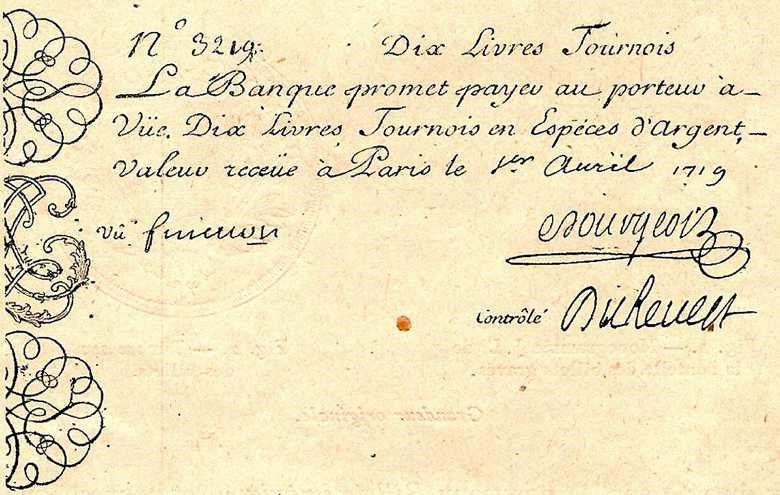 N° 3219. Dix Livres Tournois
La Banque promet payer au porteur à
Vüe Dix Livres Tournois en Espéces d'Argent,
valeur receüe à Paris le 1er Avril 1719
vû
Bourgeois
Controlé
Grandeur originale